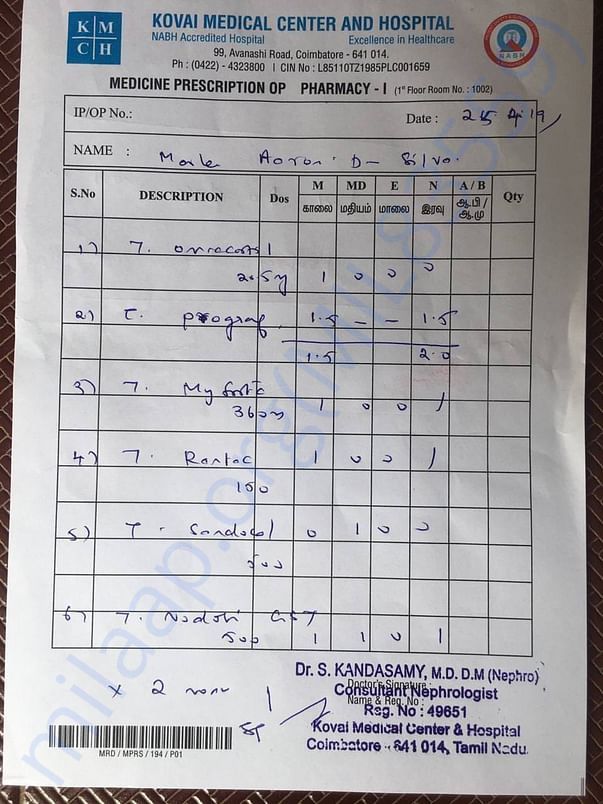 K M C H
KOVAI MEDICAL CENTER AND HOSPITAL
NABH Accredited Hospital Excellence in Healthcare
99, Avanashi Road, Coimbatore - 641 014.
Ph : (0422) - 4323800 | CIN No : L85110TZ1985PLC001659
NABH
MEDICINE PRESCRIPTION OP PHARMACY - I (1st Floor Room No. : 1002)
IP/OP No.: Date : 25 4 19
NAME : Aoron D
S.No DESCRIPTION Dos M MD E N A / B Qty
காலை மதியம் மாலை இரவு ஆ.பி / ஆ.மு
1) T.
2.5mg 1 0 0 0
2) T. Prograf 1.5 - - 1.5
1.5 2.0
3) T. Myfortic
360 1 0 0 1
4) T. Rantac 1 0 0 1
150
5) T. 0 1 0 0
500
6) T.
500 1 1 0 1
x 2
Dr. S. KANDASAMY, M.D. D.M (Nephro)
Doctor's Signature
Consultant Nephrologist
Name & Reg. No
Reg. No : 49651
Kovai Medical Center & Hospital
Coimbatore - 641 014, Tamil Nadu
MRD / MPRS / 194 / P01